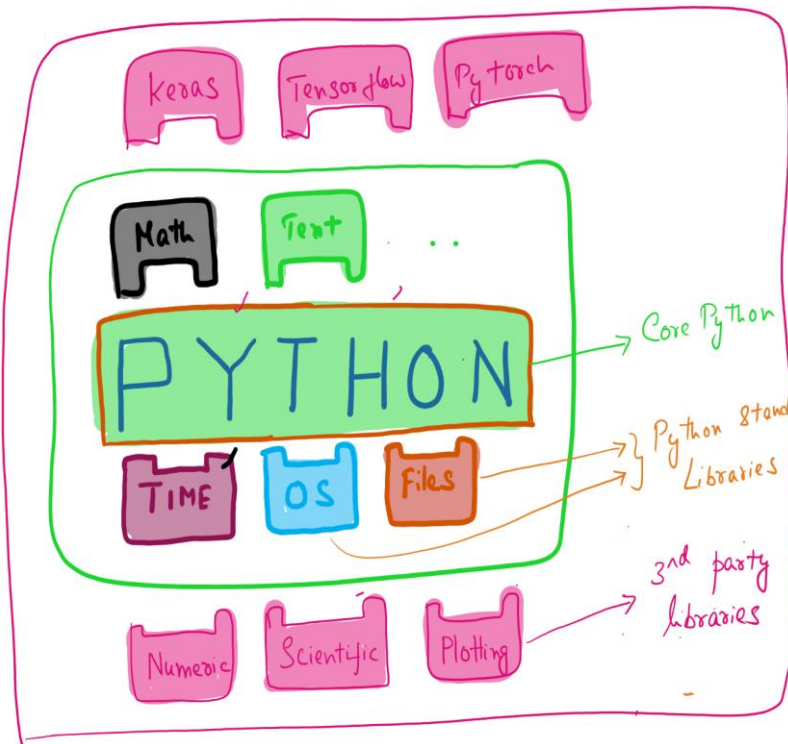 Keras
Tensorflow
Pytorch
Math
Text
. . .
PYTHON
Core Python
TIME
OS
Files
Python Stand
Libraries
3rd party
libraries
Numeric
Scientific
Plotting